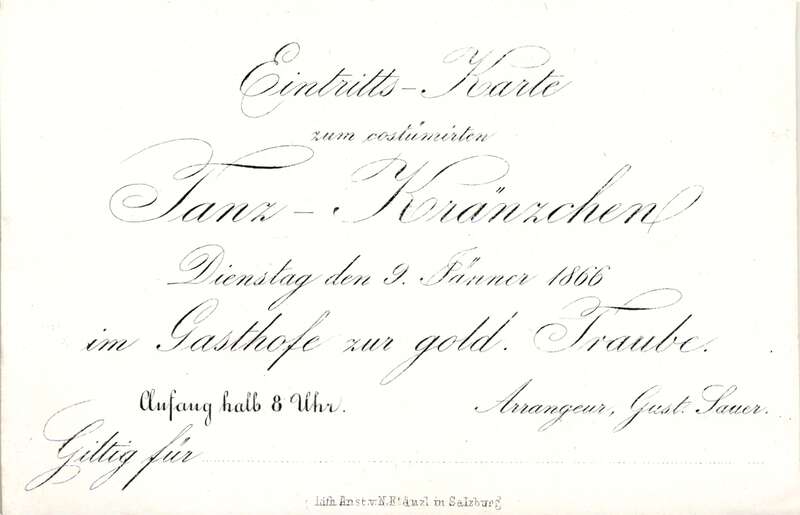 Eintritts-Karte
zum costümirten
Tanz-Kränzchen
Dienstag den 9. Jänner 1866
im Gasthofe zur gold. Traube.
Anfang halb 8 Uhr. Arrangeur, Gust. Sauer.
Giltig für
Lith. Anst. v. N. in Salzburg